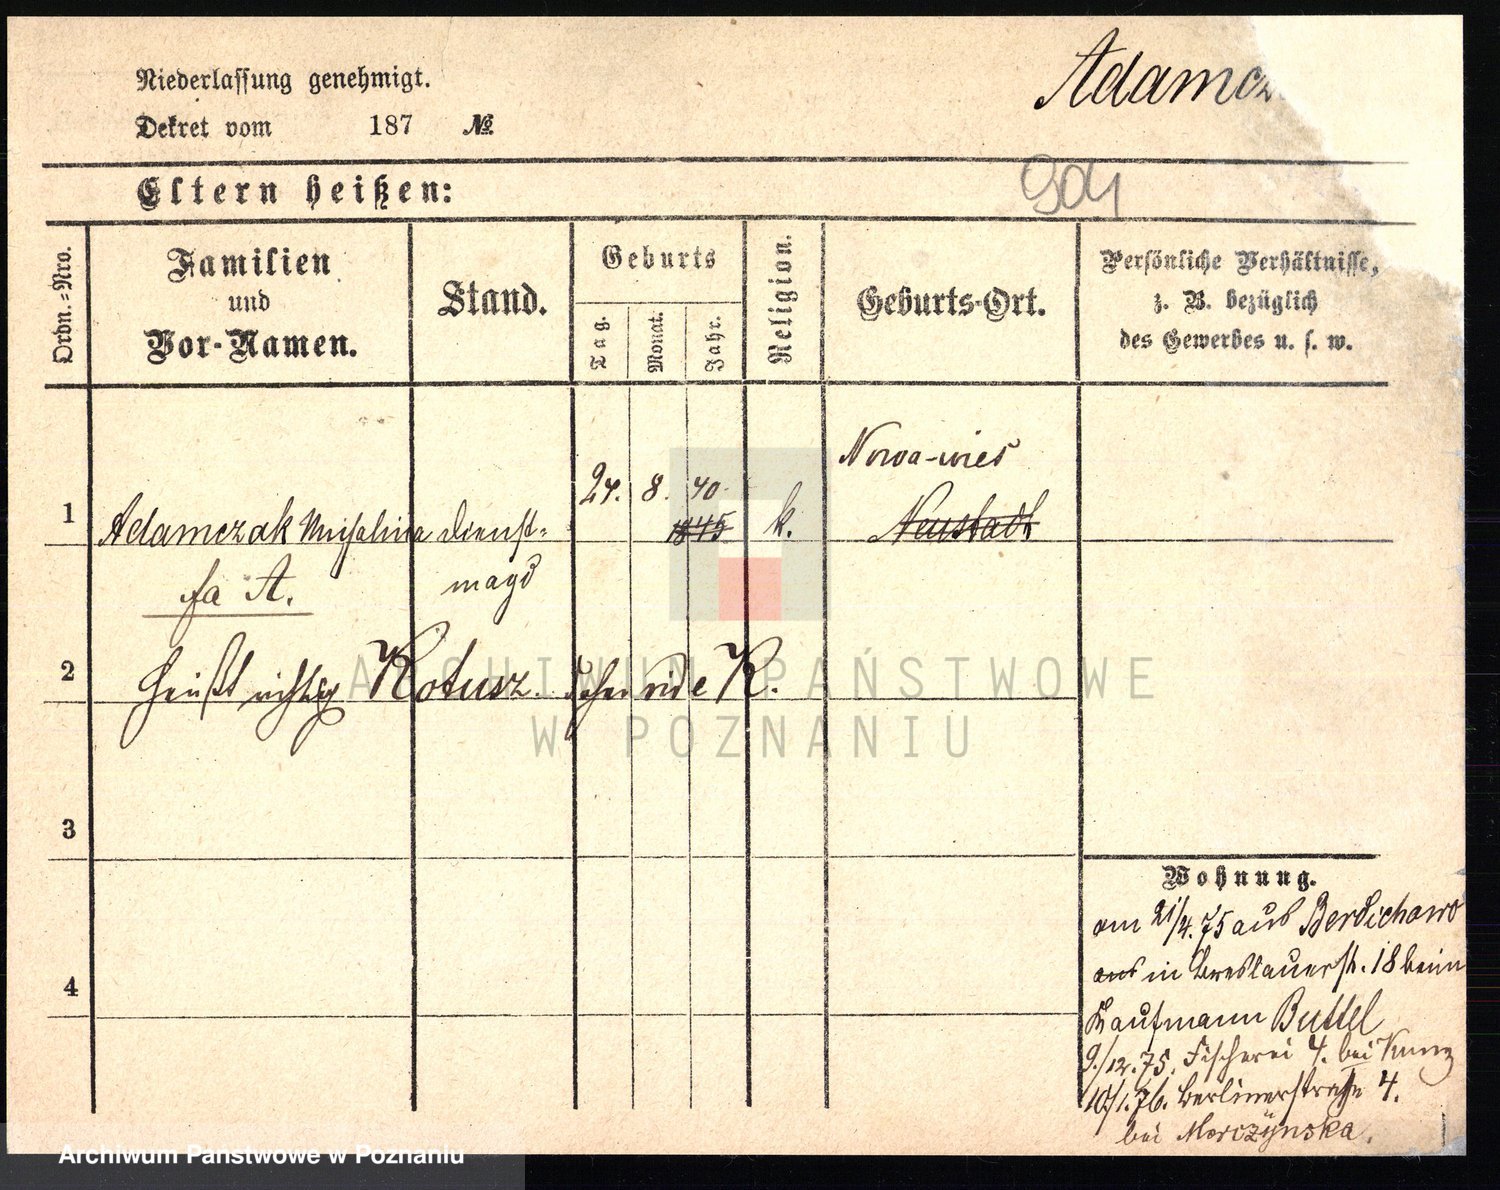 Niederlassung genehmigt.
Dekret vom 187 №
Adamcz
Eltern heißen:
904
Ordn.-Nro.
Familien
und
Vor-Namen.
Stand.
Geburts
Tag.
Monat.
Jahr.
Religion.
Geburts-Ort.
Persönliche Verhältnisse,
z. B. bezüglich
des Gewerbes u. s. w.
Nowa-wies
24. 8. 40.
1 Adamczak Michalina Dienst= 1845 k. Neustadt
fa A. magd
2 heißt richtig Kotusz. daher vide K.
ARCHIWUM PAŃSTWOWE
W POZNANIU
3
4
Wohnung.
am 21/4.75 aus Berdichowo
aus in Breslauerstr. 18 beim
Kaufmann Buttel
9./12.75. Fischerei 4. bei Kunz
10/1.76. Berlinerstraße 4.
bei Morczynska.
Archiwum Państwowe w Poznaniu